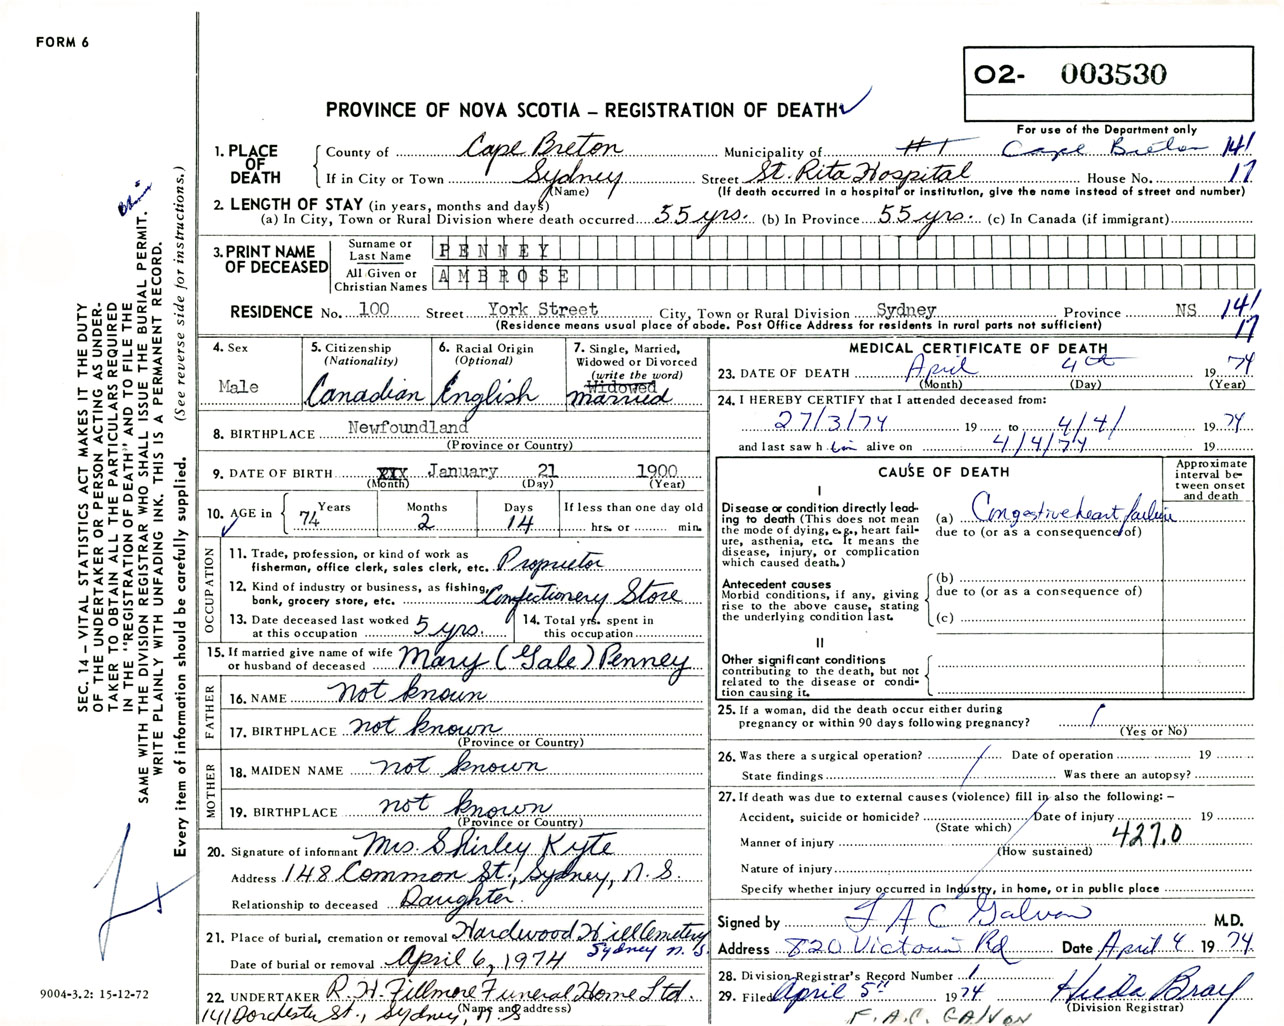 FORM 6
02- 003530
PROVINCE OF NOVA SCOTIA – REGISTRATION OF DEATH
For use of the Department only
1. PLACE OF DEATH
County of Cape Breton Municipality of #1 Cape Breton 141
If in City or Town Sydney Street St. Rita Hospital House No. 17
(Name) (If death occurred in a hospital or institution, give the name instead of street and number)
2. LENGTH OF STAY (in years, months and days)
(a) In City, Town or Rural Division where death occurred 55 yrs. (b) In Province 55 yrs. (c) In Canada (if immigrant)
3. PRINT NAME OF DECEASED
Surname or Last Name PENNEY
All Given or Christian Names AMBROSE
RESIDENCE No. 100 Street York Street City, Town or Rural Division Sydney Province NS 141
(Residence means usual place of abode. Post Office Address for residents in rural parts not sufficient) 17
4. Sex
Male
5. Citizenship
(Nationality)
Canadian
6. Racial Origin
(Optional)
English
7. Single, Married,
Widowed or Divorced
(write the word)
Widowed
married
8. BIRTHPLACE Newfoundland
(Province or Country)
9. DATE OF BIRTH XIX January 21 1900
(Month) (Day) (Year)
10. AGE in 74 Years Months 2 Days 14 If less than one day old
hrs. or min.
OCCUPATION
11. Trade, profession, or kind of work as
fisherman, office clerk, sales clerk, etc. Proprietor
12. Kind of industry or business, as fishing,
bank, grocery store, etc. Confectionery Store
13. Date deceased last worked
at this occupation 5 yrs.
14. Total yrs. spent in
this occupation
15. If married give name of wife
or husband of deceased Mary (Gale) Penney
FATHER
16. NAME not known
17. BIRTHPLACE not known
(Province or Country)
MOTHER
18. MAIDEN NAME not known
19. BIRTHPLACE not known
(Province or Country)
20. Signature of informant Mrs. Shirley Kyte
Address 148 Common St., Sydney, N.S.
Relationship to deceased Daughter.
21. Place of burial, cremation or removal Hardwood Hill Cemetery
Sydney N.S.
Date of burial or removal April 6, 1974
22. UNDERTAKER R. H. Fillmore Funeral Home Ltd.
(Name and address)
141 Dorchester St., Sydney, N.S
MEDICAL CERTIFICATE OF DEATH
23. DATE OF DEATH April 4th 1974
(Month) (Day) (Year)
24. I HEREBY CERTIFY that I attended deceased from:
27/3/74 19 to 4/4/ 1974
and last saw him alive on 4/4/74 19
CAUSE OF DEATH
Approximate
interval be-
tween onset
and death
I
Disease or condition directly lead-
ing to death (This does not mean
the mode of dying, e.g., heart fail-
ure, asthenia, etc. It means the
disease, injury, or complication
which caused death.)
(a) Congestive heart failure
due to (or as a consequence of)
Antecedent causes
Morbid conditions, if any, giving
rise to the above cause, stating
the underlying condition last.
(b)
due to (or as a consequence of)
(c)
II
Other significant conditions
contributing to the death, but not
related to the disease or condi-
tion causing it.
25. If a woman, did the death occur either during
pregnancy or within 90 days following pregnancy?
(Yes or No)
26. Was there a surgical operation? Date of operation 19
State findings Was there an autopsy?
27. If death was due to external causes (violence) fill in also the following: –
Accident, suicide or homicide? Date of injury 19
(State which)
Manner of injury 427.0
(How sustained)
Nature of injury
Specify whether injury occurred in Industry, in home, or in public place
Signed by F A C Galvon M.D.
Address 820 Victoria Rd Date April 4 1974.
28. Division Registrar's Record Number 1
29. Filed April 5th 1974 Hilda Bray
(Division Registrar)
F.A.C. GALVON
SEC. 14 – VITAL STATISTICS ACT MAKES IT THE DUTY
OF THE UNDERTAKER OR PERSON ACTING AS UNDER-
TAKER TO OBTAIN ALL THE PARTICULARS REQUIRED
IN THE "REGISTRATION OF DEATH" AND TO FILE THE
SAME WITH THE DIVISION REGISTRAR WHO SHALL ISSUE THE BURIAL PERMIT.
WRITE PLAINLY WITH UNFADING INK. THIS IS A PERMANENT RECORD.
Every item of information should be carefully supplied. (See reverse side for instructions.)
9004-3.2: 15-12-72